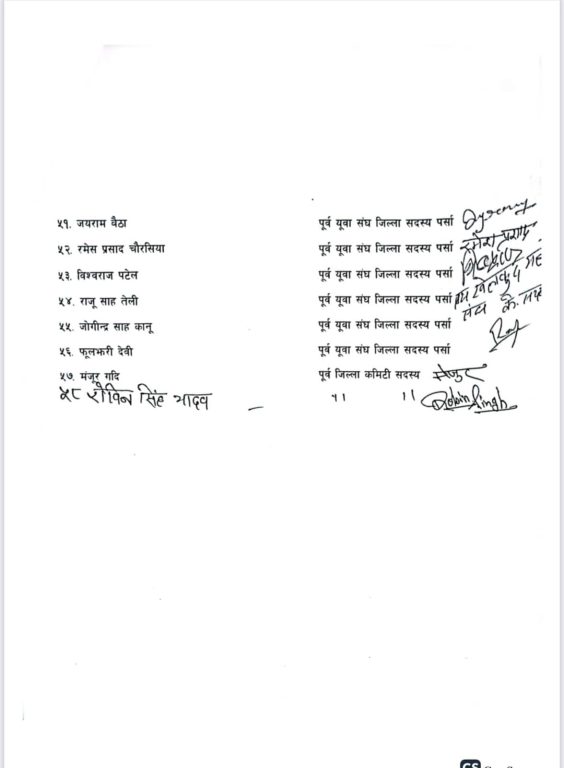 ५१. जयराम बैठा पूर्व यूवा संघ जिल्ला सदस्य पर्सा
५२. रमेस प्रसाद चौरसिया पूर्व यूवा संघ जिल्ला सदस्य पर्सा रमेश प्रसाद
५३. विश्वराज पटेल पूर्व यूवा संघ जिल्ला सदस्य पर्सा
५४. राजू साह तेली पूर्व यूवा संघ जिल्ला सदस्य पर्सा
५५. जोगीन्द्र साह कानू पूर्व यूवा संघ जिल्ला सदस्य पर्सा
५६. फूलझरी देवी पूर्व यूवा संघ जिल्ला सदस्य पर्सा
५७. मंजूर गदि पूर्व जिल्ला कमिटी सदस्य
५८ रोविन सिंह यादव — " " Robin Singh
CS